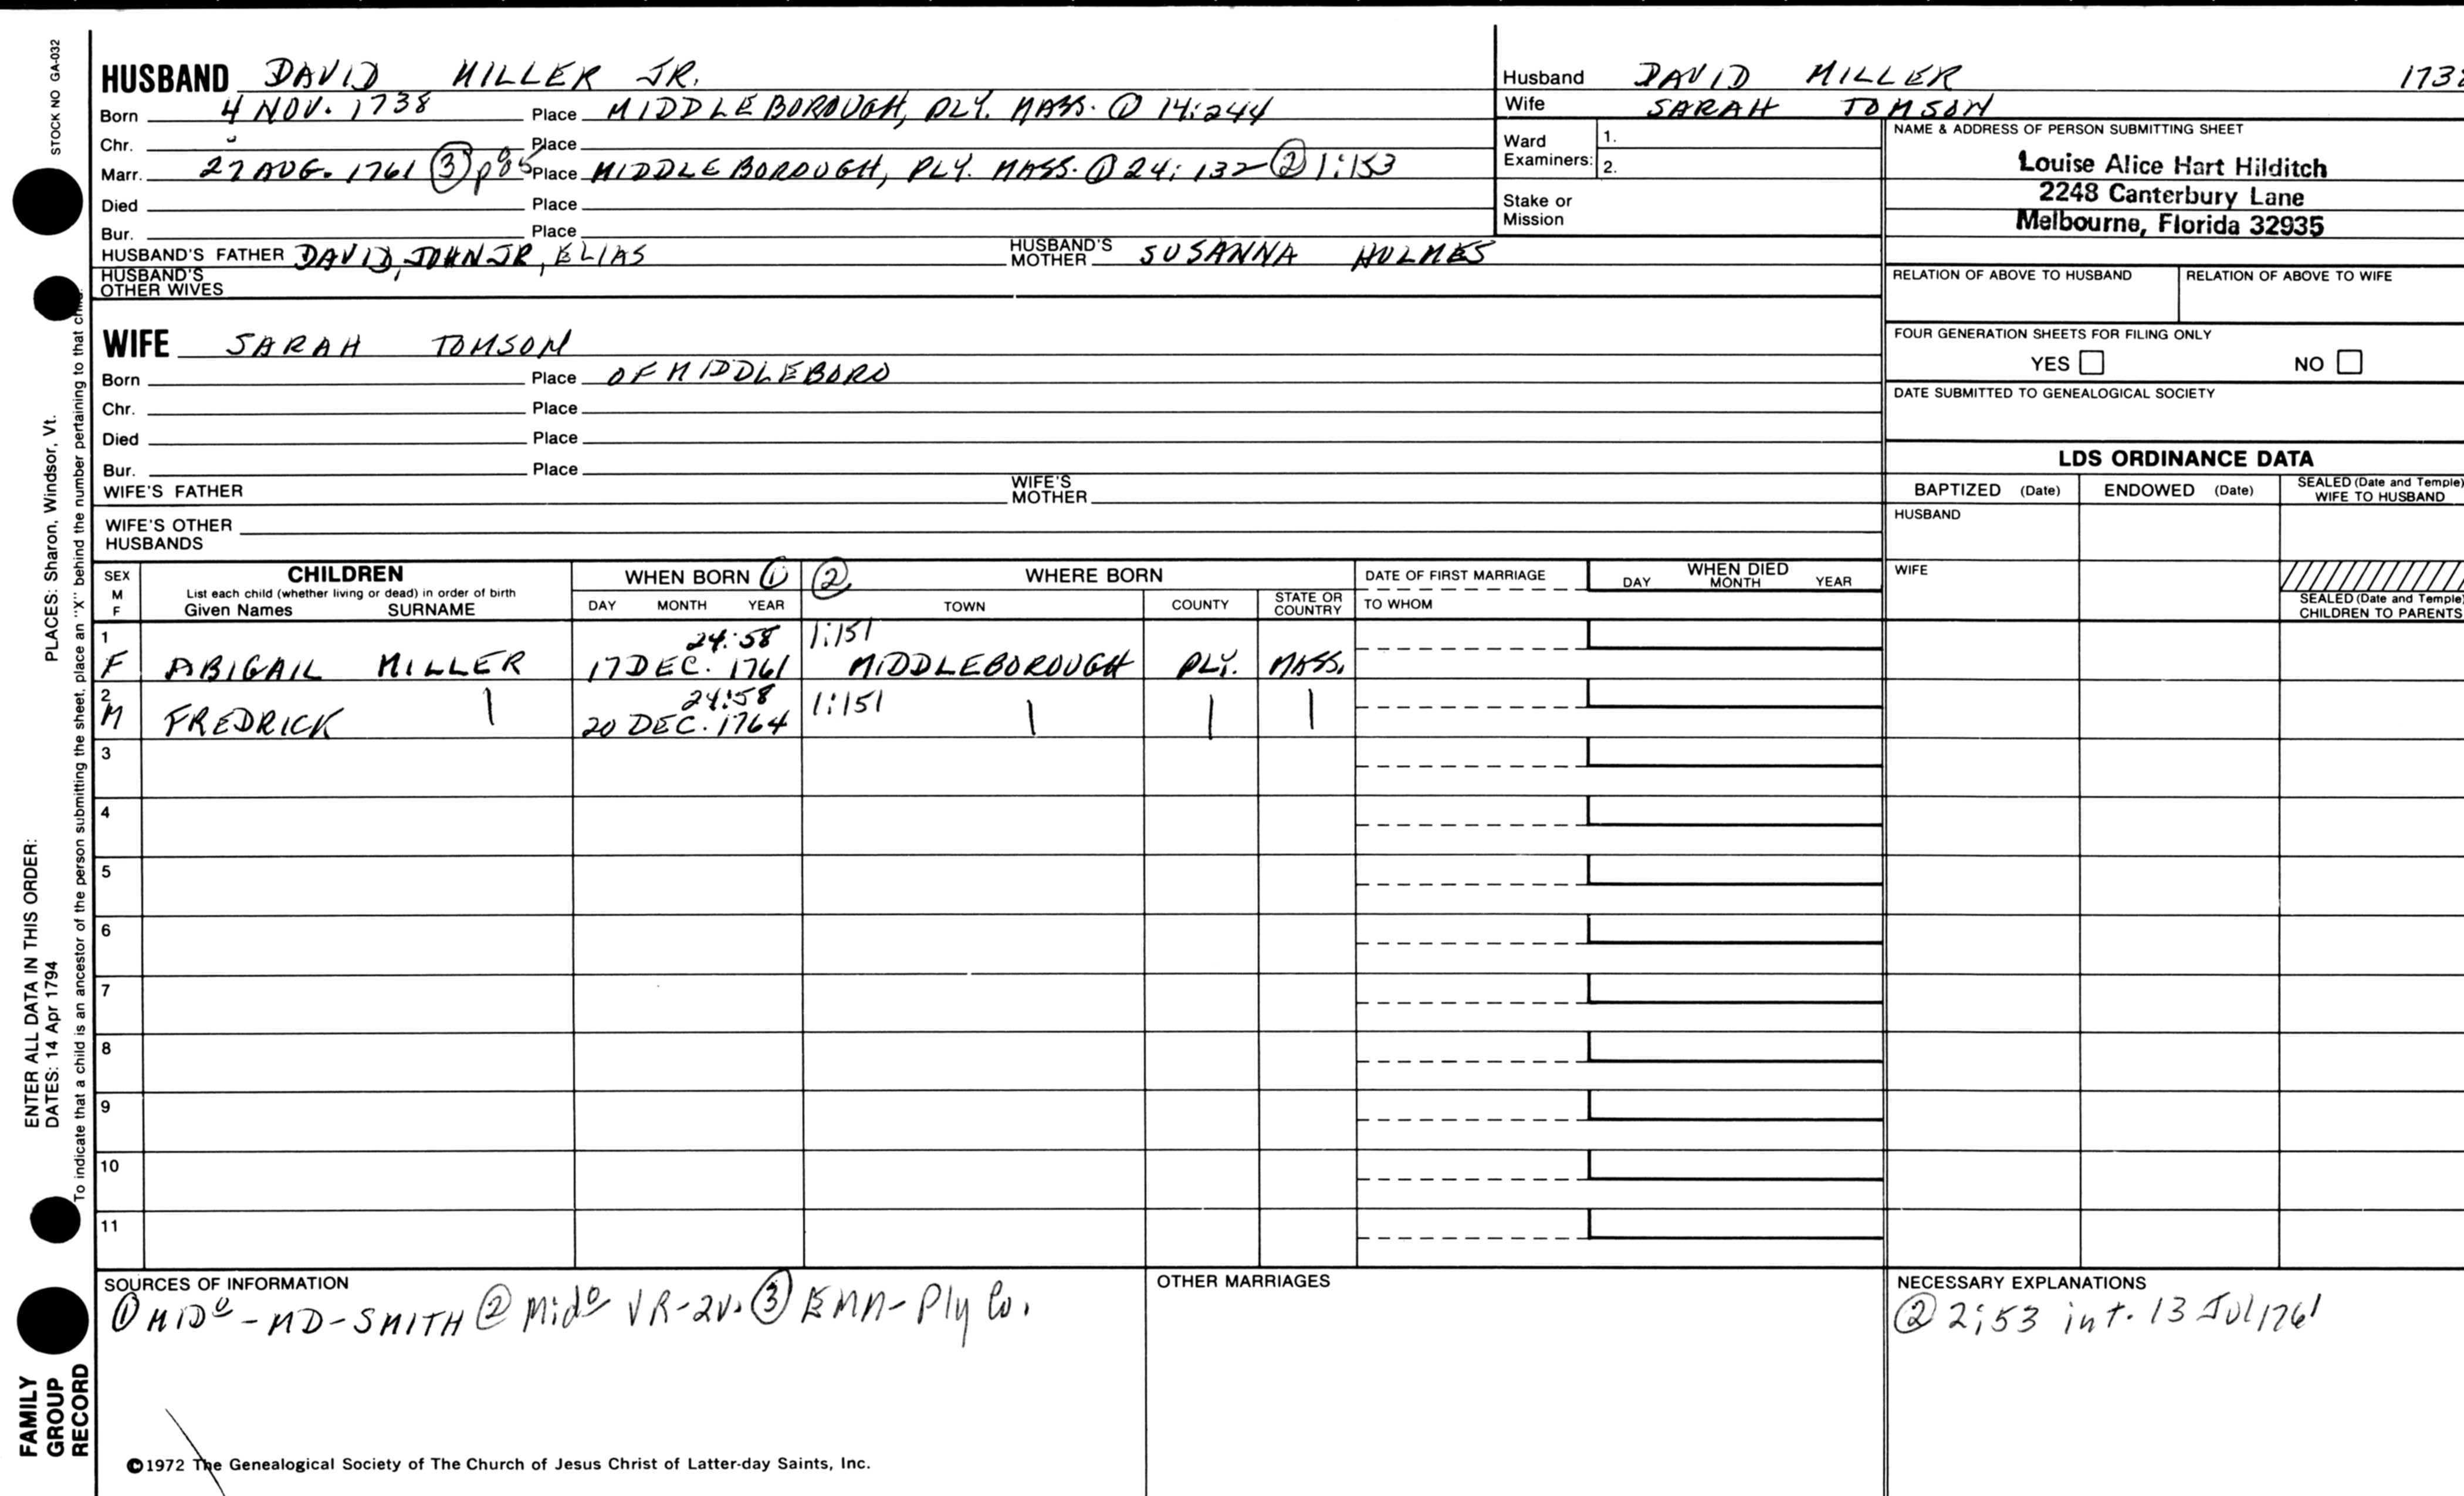 STOCK NO GA-032
HUSBAND DAVID MILLER JR.
Born 4 NOV. 1738 Place MIDDLEBOROUGH, PLY. MASS. ① 14:244
Chr. Place
Marr. 27 AUG. 1761 ③ p85 Place MIDDLEBOROUGH, PLY. MASS. ① 24:132 ② 1:153
Died Place
Bur. Place
HUSBAND'S FATHER DAVID, JOHN JR, ELIAS HUSBAND'S MOTHER SUSANNA HOLMES
HUSBAND'S OTHER WIVES
Husband DAVID MILLER 1738
Wife SARAH TOMSON
Ward Examiners: 1.
2.
Stake or Mission
NAME & ADDRESS OF PERSON SUBMITTING SHEET
Louise Alice Hart Hilditch
2248 Canterbury Lane
Melbourne, Florida 32935
RELATION OF ABOVE TO HUSBAND RELATION OF ABOVE TO WIFE
FOUR GENERATION SHEETS FOR FILING ONLY
YES NO
DATE SUBMITTED TO GENEALOGICAL SOCIETY
WIFE SARAH TOMSON
Born Place OF MIDDLEBORO
Chr. Place
Died Place
Bur. Place
WIFE'S FATHER WIFE'S MOTHER
WIFE'S OTHER HUSBANDS
LDS ORDINANCE DATA
BAPTIZED (Date) ENDOWED (Date) SEALED (Date and Temple) WIFE TO HUSBAND
HUSBAND
WIFE
SEALED (Date and Temple) CHILDREN TO PARENTS
SEX M F
CHILDREN
List each child (whether living or dead) in order of birth
Given Names SURNAME
WHEN BORN ① ② WHERE BORN
DAY MONTH YEAR TOWN COUNTY STATE OR COUNTRY
DATE OF FIRST MARRIAGE
TO WHOM
WHEN DIED
DAY MONTH YEAR
1 24:58 1:151
F ABIGAIL MILLER 17 DEC. 1761 MIDDLEBOROUGH PLY. MASS.
2 24:58 1:151
M FREDRICK | 20 DEC. 1764 | | |
3
4
5
6
7
8
9
10
11
SOURCES OF INFORMATION
① MIDo - MD - SMITH ② Mido VR-2V. ③ EMM- Ply Co.
OTHER MARRIAGES
NECESSARY EXPLANATIONS
② 2:53 int. 13 Jul 1761
©1972 The Genealogical Society of The Church of Jesus Christ of Latter-day Saints, Inc.
ENTER ALL DATA IN THIS ORDER:
DATES: 14 Apr 1794 PLACES: Sharon, Windsor, Vt.
To indicate that a child is an ancestor of the person submitting the sheet, place an "X" behind the number pertaining to that child.
FAMILY
GROUP
RECORD